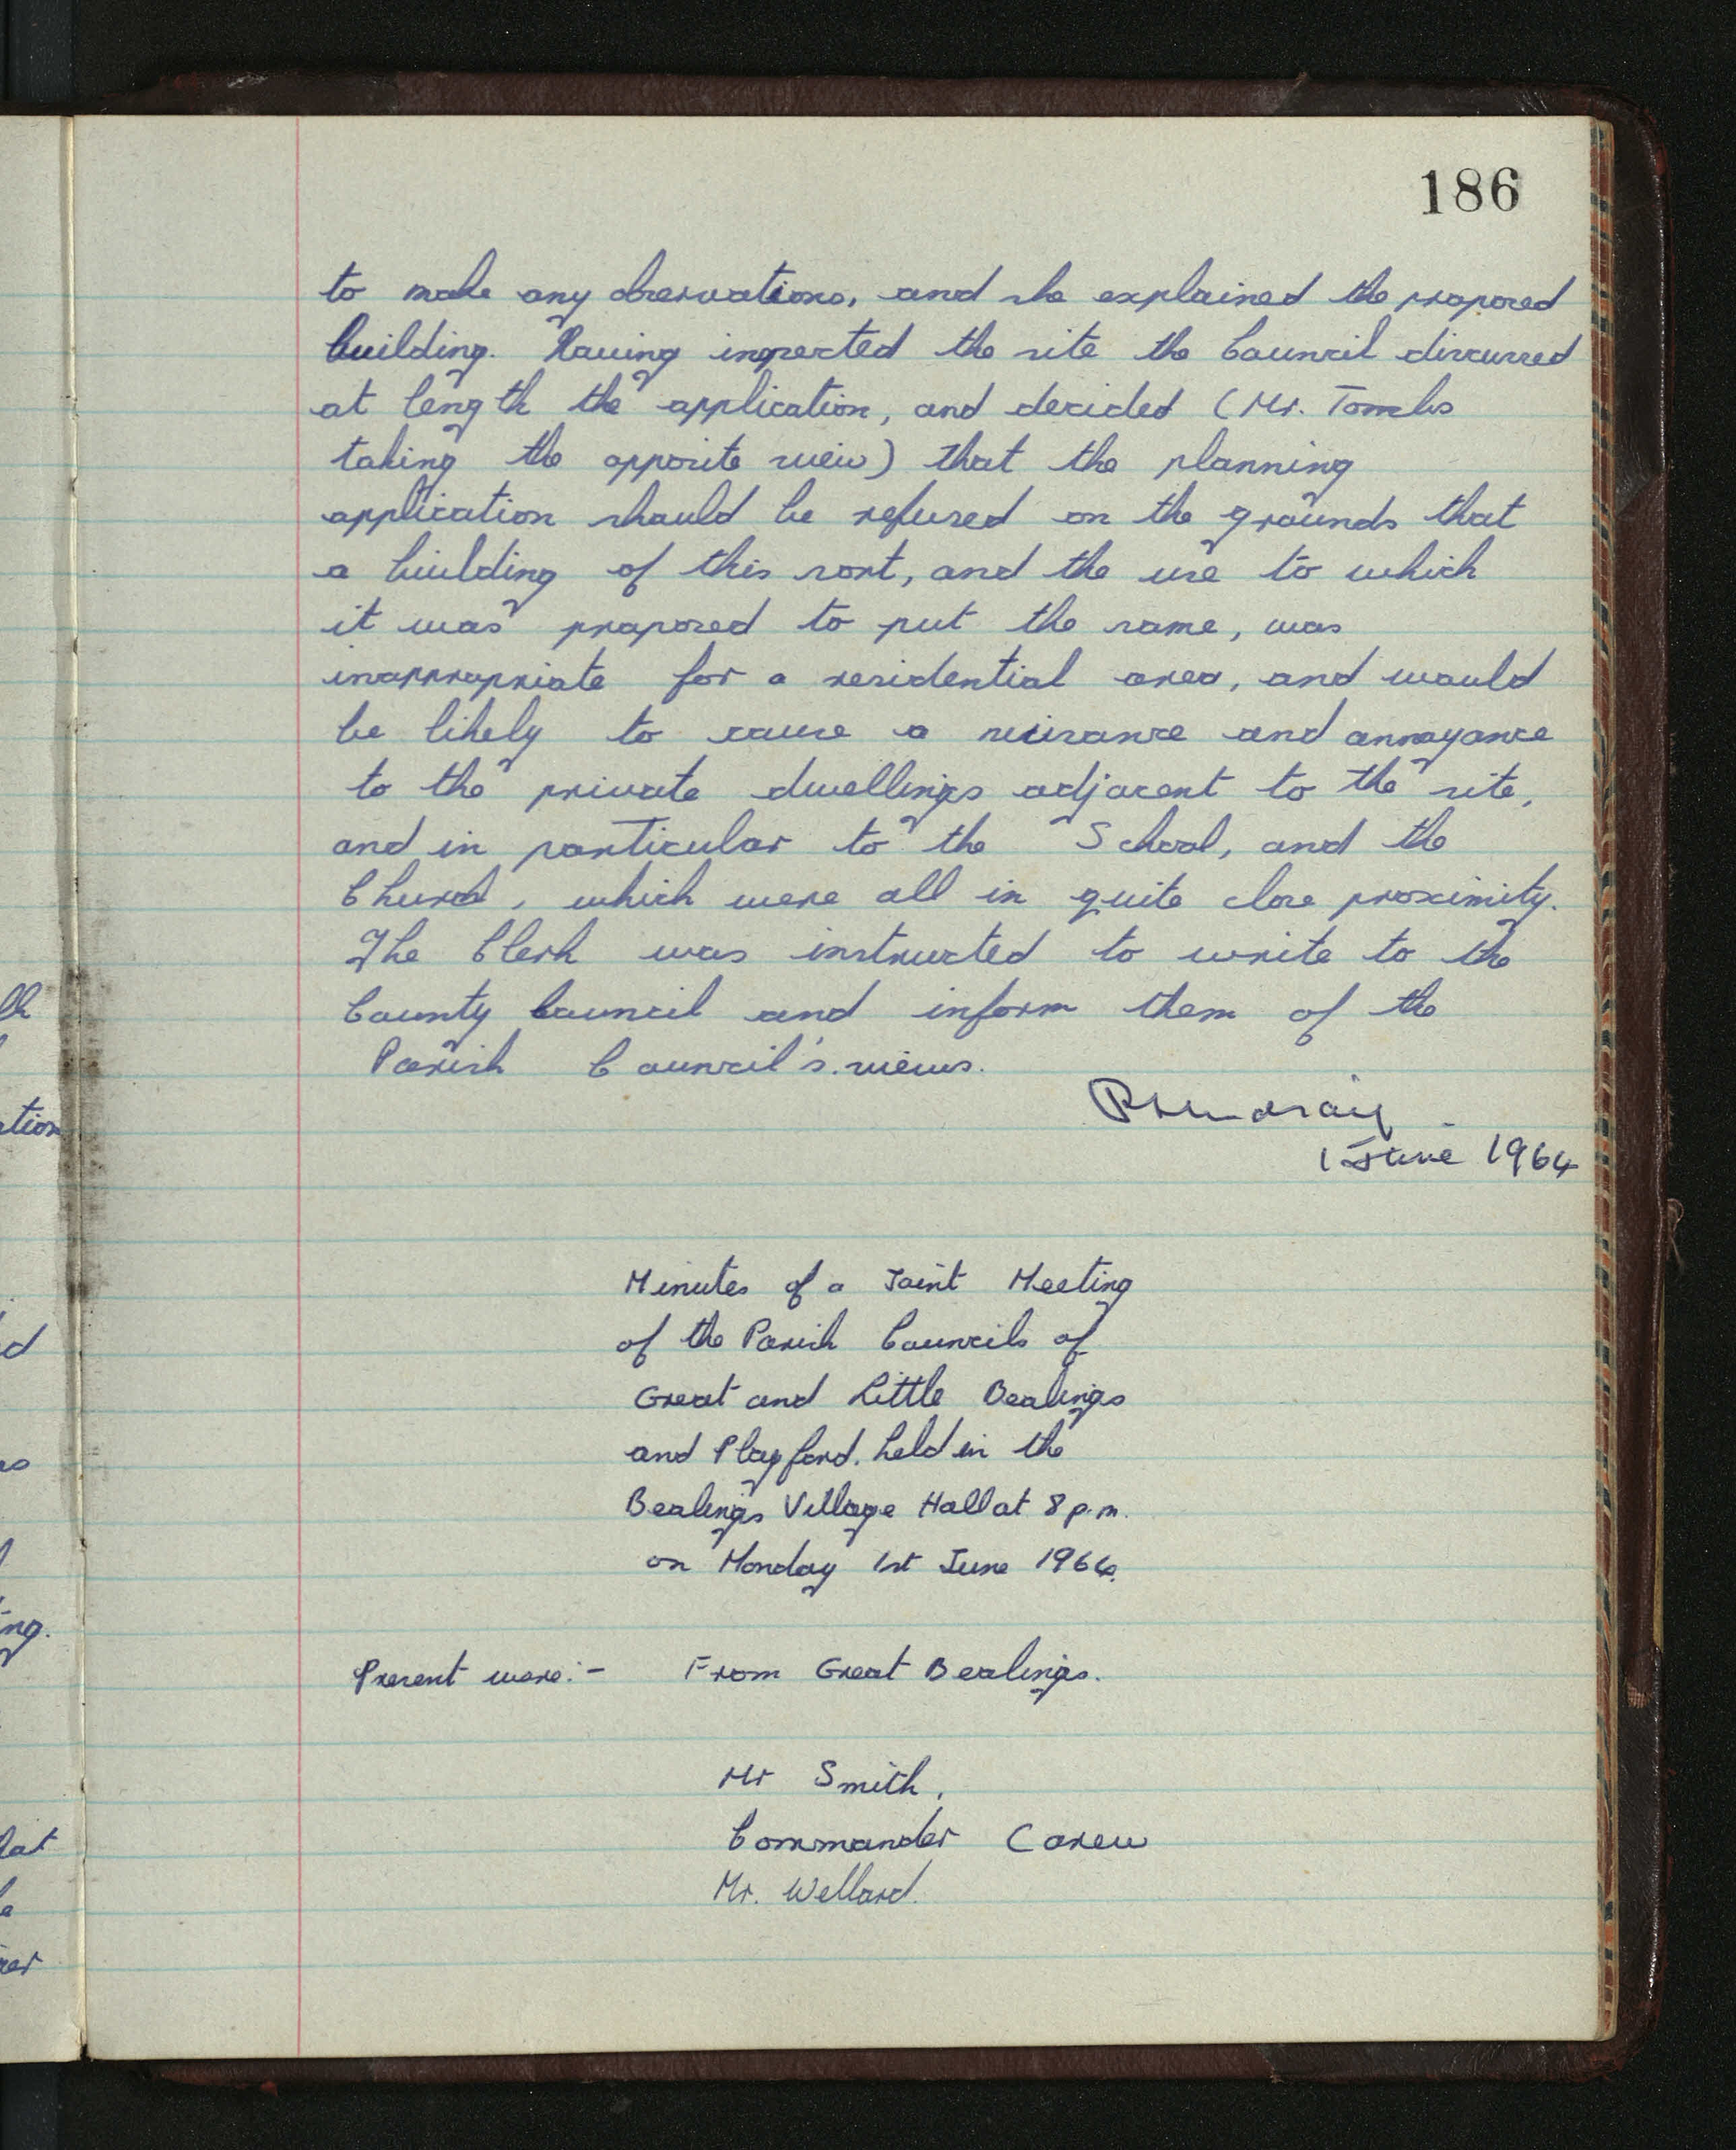 186
to make any observations, and she explained the proposed
building. Having inspected the site the Council discussed
at length the application, and decided (Mr. Tombs
taking the opposite view) that the planning
application should be refused on the grounds that
a building of this sort, and the use to which
it was proposed to put the same, was
inappropriate for a residential area, and would
be likely to cause a nuisance and annoyance
to the private dwellings adjacent to the site,
and in particular to the School, and the
Church, which were all in quite close proximity.
The Clerk was instructed to write to the
County Council and inform them of the
Parish Council's views.
1 June 1964
Minutes of a Joint Meeting
of the Parish Councils of
Great and Little Bealings
and Playford. held in the
Bealings Village Hall at 8 p.m.
on Monday 1st June 1964.
Present were:- From Great Bealings.
Mr Smith.
Commander Carew
Mr. Wellard.